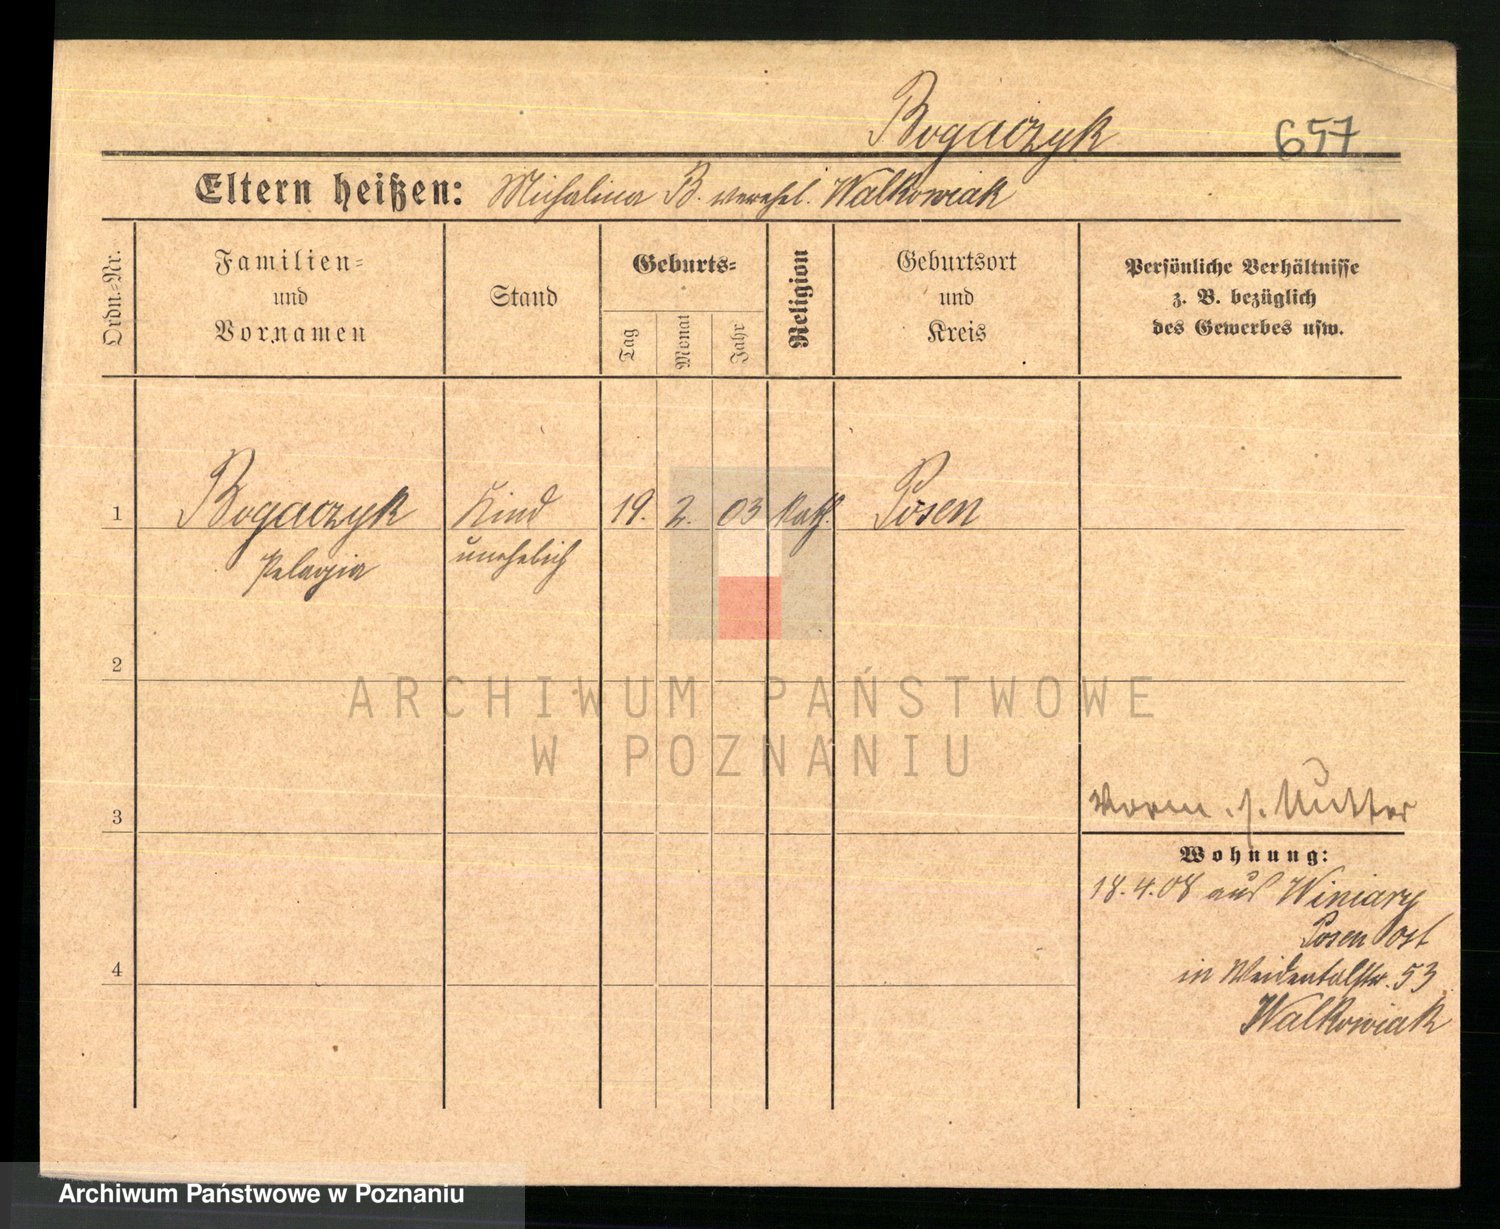 Bogaczyk 657
Eltern heißen: Michalina B. verehel. Walkowiak
Ordn.-Nr.
Familien-
und
Vornamen
Stand
Geburts-
Tag
Monat
Jahr
Religion
Geburtsort
und
Kreis
Persönliche Verhältnisse
z. B. bezüglich
des Gewerbes usw.
1 Bogaczyk Kind 19. 2. 03 kath. Posen
Pelagia unehelich
2
ARCHIWUM PAŃSTWOWE
W POZNANIU
3
Vorm. s. Mutter
Wohnung:
18.4.08 aus Winiary
Posen Ost
in Weidentalstr. 53
Walkowiak
4
Archiwum Państwowe w Poznaniu